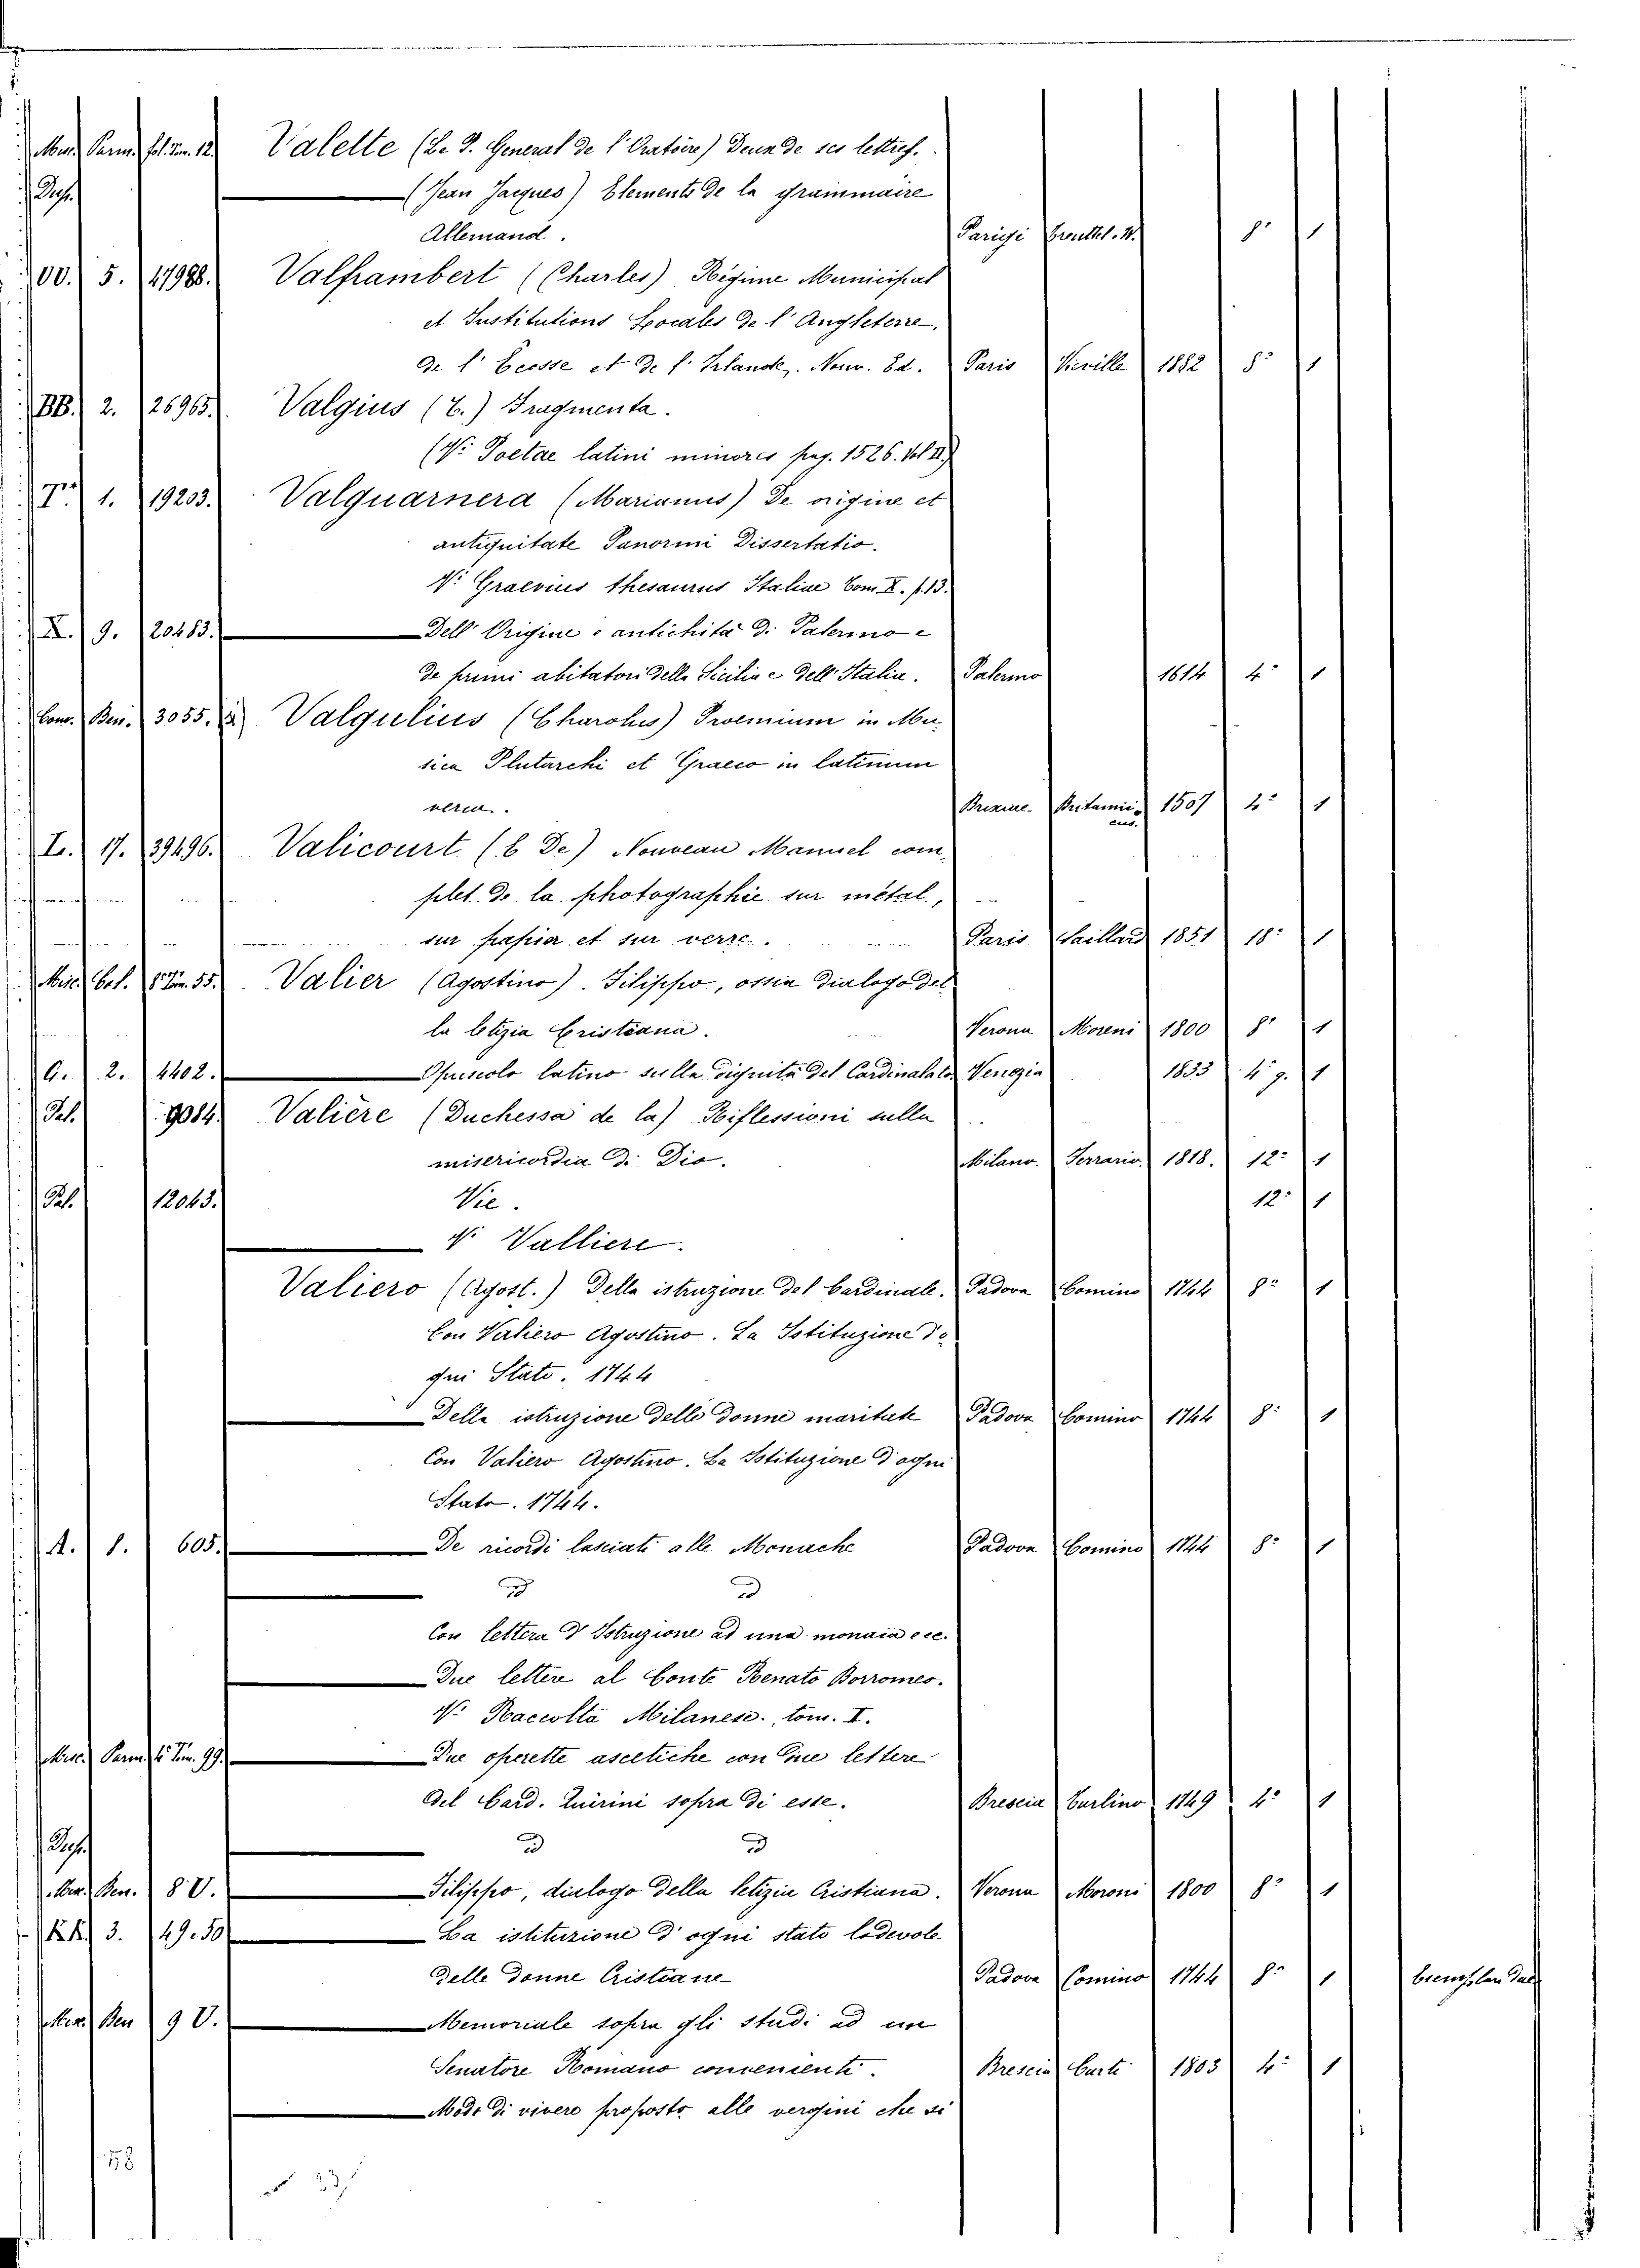 Valette (Le P. General de l'Oratoire) Deux de ses lettres.
(Jean Jacques) Elements de la grammaire
Dup.
Allemand. Parigi 8° 1
00. 5. 17988. Valframbert (Charles) Régime Municipal
et Institutions Locales de l'Angleterre,
de l'Ecosse et de l'Irlande. Nouv. Ed. Paris Vieville 1882 8° 1
BB. 2. 26965. Valgius (C.) Fragmenta.
(V. Poetae latini minores pag. 1526. Vol II.)
1. 19203. Valguarnera (Marianus) De origine et
antiquitate Panormi Dissertatio.
V. Graevius thesaurus Italiae Tom X. p. 13.
X. 9. 20483. Dell'Origine e antichità di Palermo e
de primi abitatori della Sicilia e dell'Italia. Palermo 1614 4° 1
Conv. Ben. 3055. Valgulius (Charolus) Proemium in Mu-
sica Plutarchi et Graeco in latinum
versa. Brixiae. Britannicus. 1507 4° 1
L. 17. 39496. Valicourt (E De) Nouveau Manuel com-
plet de la photographie sur métal,
sur papier et sur verre. Paris 1851 18° 1.
Misc. Bol. 8° Tom. 55. Valier (Agostino). Filippo, ossia dialogo del-
la letizia Cristiana. Verona Moreni 1800 8° 1
G. 2. 4402. Opuscolo latino sulla dignità del Cardinalato Venezia 1833 4° g. 1
Pal. 9084. Valière (Duchessa de la) Riflessioni sulla
misericordia di Dio. Milano. Ferrario. 1818. 12° 1
Pal. 12043. Vie. 12° 1
V. Valliere.
Valiero (Agost.) Della istruzione del Cardinale. Padova Comino 1744 8° 1
Con Valiero Agostino. La Istituzione d'o-
gni Stato. 1744
Della istruzione delle donne maritate Padova Comino 1744 8° 1
Con Valiero Agostino. La Istituzione d'ogni
Stato. 1744.
A. 8. 605. De ricordi lasciati alle Monache Padova Comino 1744 8° 1
id id
Con lettera d'Istruzione ad una monaca ecc.
Due lettere al Conte Renato Borromeo.
V. Raccolta Milanese. tom. I.
Misc. Parm. 4° Tom. 99. Due operette ascetiche con due lettere
del Card. Quirini sopra di esse. Brescia Turlino 1749 4° 1
Dup. id id
Misc. Ben. 8° V. Filippo, dialogo della letizia Cristiana. Verona Moroni 1800 8° 1
KK. 3. 49.50 La istituzione d'ogni stato lodevole
delle donne Cristiane Padova Comino 1744 8° 1
Misc. Ben 9 V. Memoriale sopra gli studi ad un
Senatore Romano convenienti. Brescia 1803 4° 1
Modo di vivere proposto alle vergini che si